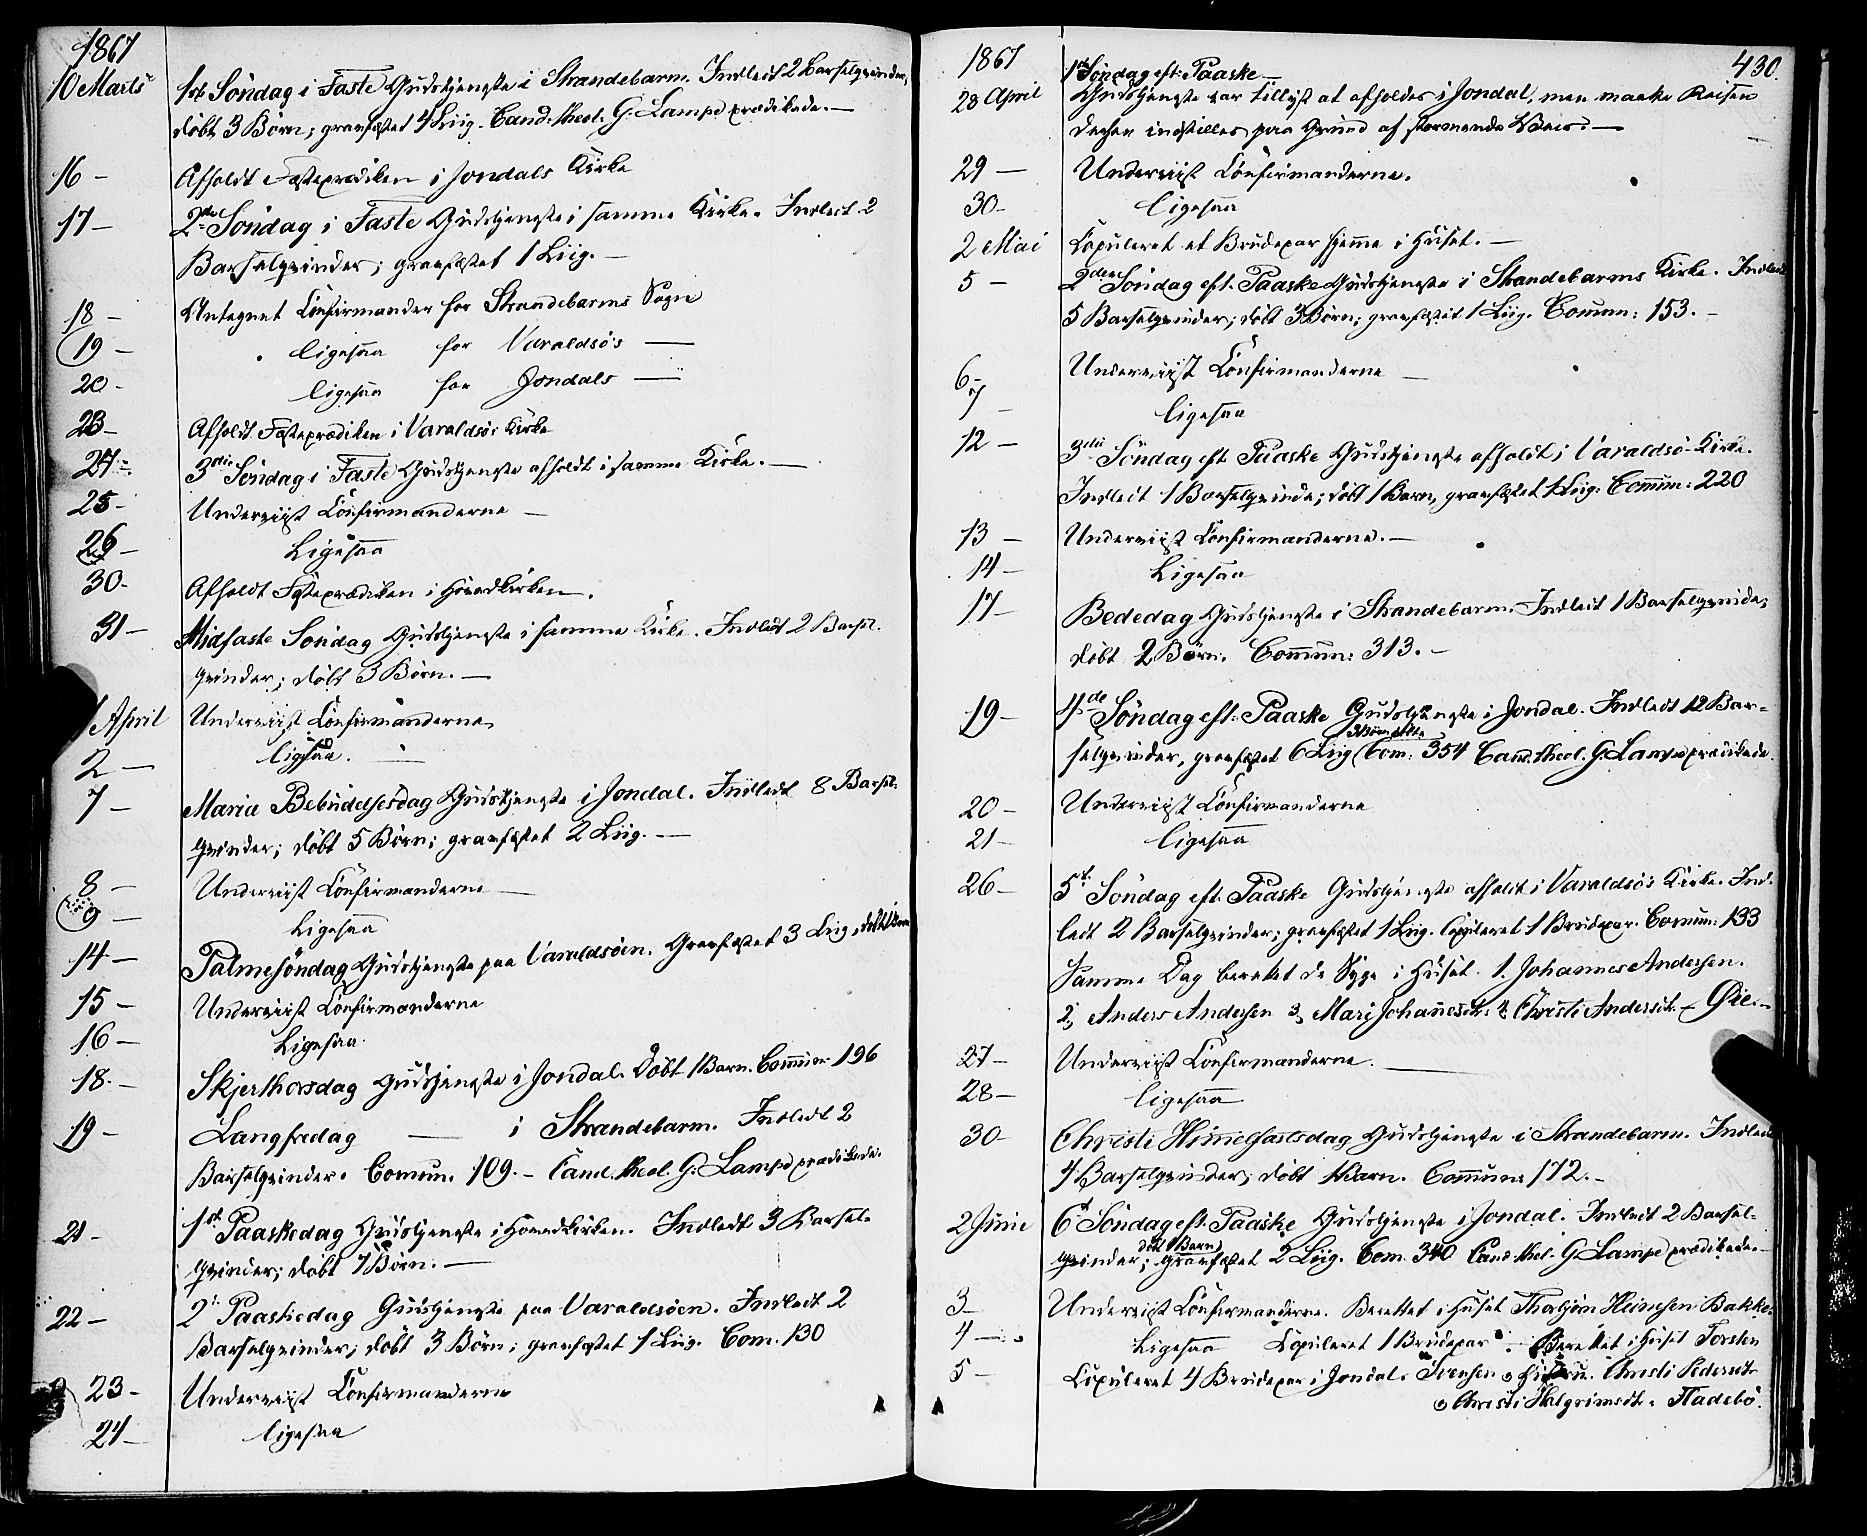 1867
10 Marts 1ste Søndag i Faste Gudstjeneste i Strandebarm. Indledt 2 Barselqvinder,
døbt 3 Børn; gravfæstet 4 Liig. Cand. theol. G. Lampe prædikede. —
16 – Afholdt Fasteprædiken i Jondals Kirke
17 – 2den Søndag i Faste Gudstjeneste i samme Kirke. Indledt 2
Barselqvinder; gravfæstet 1 Liig. –
18 – Antegnet Confirmander for Strandebarms Sogn
19 – ligesaa for Varaldsøs —
20 - ligesaa for Jondals —
23 – Afholdt Fasteprædiken i Varaldsøs Kirke
24 – 3die Søndag i Faste Gudstjeneste afholdt i samme Kirke. —
25 – Underviist Confirmanderne –
26 – Ligesaa
30 - Afholdt Fasteprædiken i Hovedkirken.
31 – Midfaste Søndag Gudstjeneste i samme Kirke. Indledt 2 Barsel-
qvinder; døbt 3 Børn. —
1 April Underviist Confirmanderne
2 — ligesaa. –
7 – Mariæ Bebudelsesdag Gudstjeneste i Jondal. Indledt 8 Barsel-
qvinder; døbt 5 Børn; gravfæstet 2 Liig. —
8 – Underviist Confirmanderne —
9 – Ligesaa
14 – Palmesøndag Gudstjeneste paa Varaldsøen. Gravfæstet 3 Liig, døbt 1 Barn
15 – Underviist Confirmanderne
16 – Ligesaa.
18 – Skjerthorsdag Gudstjeneste i Jondal. Døbt 1 Barn. Commun: 196
19 – Langfredag — i Strandebarm. Indledt 2
Barselqvinder. Comun. 109. – Cand. theol. G. Lampe prædikede.
21 – 1ste Paaskedag Gudstjeneste i Hovedkirken. Indledt 3 Barsel-
qvinder; døbt 7 Børn. —
22 – 2den Paaskedag Gudstjeneste paa Varaldsøen. Indledt 2
Barselqvinder; døbt 3 Børn; gravfæstet 1 Liig. Com. 130
23 – Underviist Confirmanderne
24 – ligesaa
430.
1867 1ste Søndag eft: Paaske
28 April Gudstjeneste var tillyst at afholdes i Jondal, men maatte Reisen
dertil indstilles paa Grund af stormende Veir. —
29 — Underviist Confirmanderne.
30 – ligesaa
2 Mai Copuleret et Brudepar hjemme i Huset. —
5 – 2den Søndag eft. Paaske Gudstjeneste i Strandebarms Kirke. Indledt
5 Barselqvinder; døbt 3 Børn; gravfæstet 1 Liig. Comun: 153. –
6 – Underviist Confirmanderne —
7 – ligesaa
12 – 3die Søndag eft Paaske Gudstjeneste afholdt i Varaldsø-Kirke.
Indledt 1 Barselqvinde; døbt 1 Barn, gravfæstet 1 Liig. Comun: 220
13 – Underviist Confirmanderne. —
14 – Ligesaa
17 – Bededag Gudstjeneste i Strandebarm. Indledt 1 Barselqvinde;
døbt 2 Børn. Commun: 313. –
19 – 4de Søndag eft. Paaske Gudstjeneste i Jondal. Indledt 12 Bar-
selqvinder, gravfæstet 6 Liig, Com: 354 Cand. theol. G. Lampe prædikede.
20 – Underviist Confirmanderne
21 – ligesaa
26 – 5te Søndag eft. Paaske Gudstjeneste afholdt i Varaldsøs Kirke. Ind-
ledt 2 Barselqvinder; gravfæstet 1 Liig. Copuleret 1 Brudepar. Comun: 133
Samme Dag berettet de Syge i Huset. 1. Johannes Andersen.
2, Anders Andersen 3, Mari Johannesdtr. 4 Christi Andersdtr. – Øie. –
27 – Underviist Confirmanderne. —
28 – ligesaa
30 – Christi Himelfartsdag Gudstjeneste i Strandebarm. Indledt
4 Barselqvinder; døbt 1 Barn. Commun: 172. –
2 Junie 6te Søndag eft. Paaske Gudstjeneste i Jondal. Indledt 2 Barsel-
qvinder; døbt 1 Barn; gravfæstet 2 Liig. Com. 340 Cand. thel. G. Lampe prædikede. –
3 – Underviist Confirmanderne. Berettet i Huset Thorbjørn Heinesen Bakke.
4 — Ligesaa Copuleret 1 Brudepar. – Berettet i Huset Torsten
5 – Copuleret 4 Brudepar i Jondal. Svensen Christi Pedersdt.
o Christi Halgrimsdtr. Fladebø.